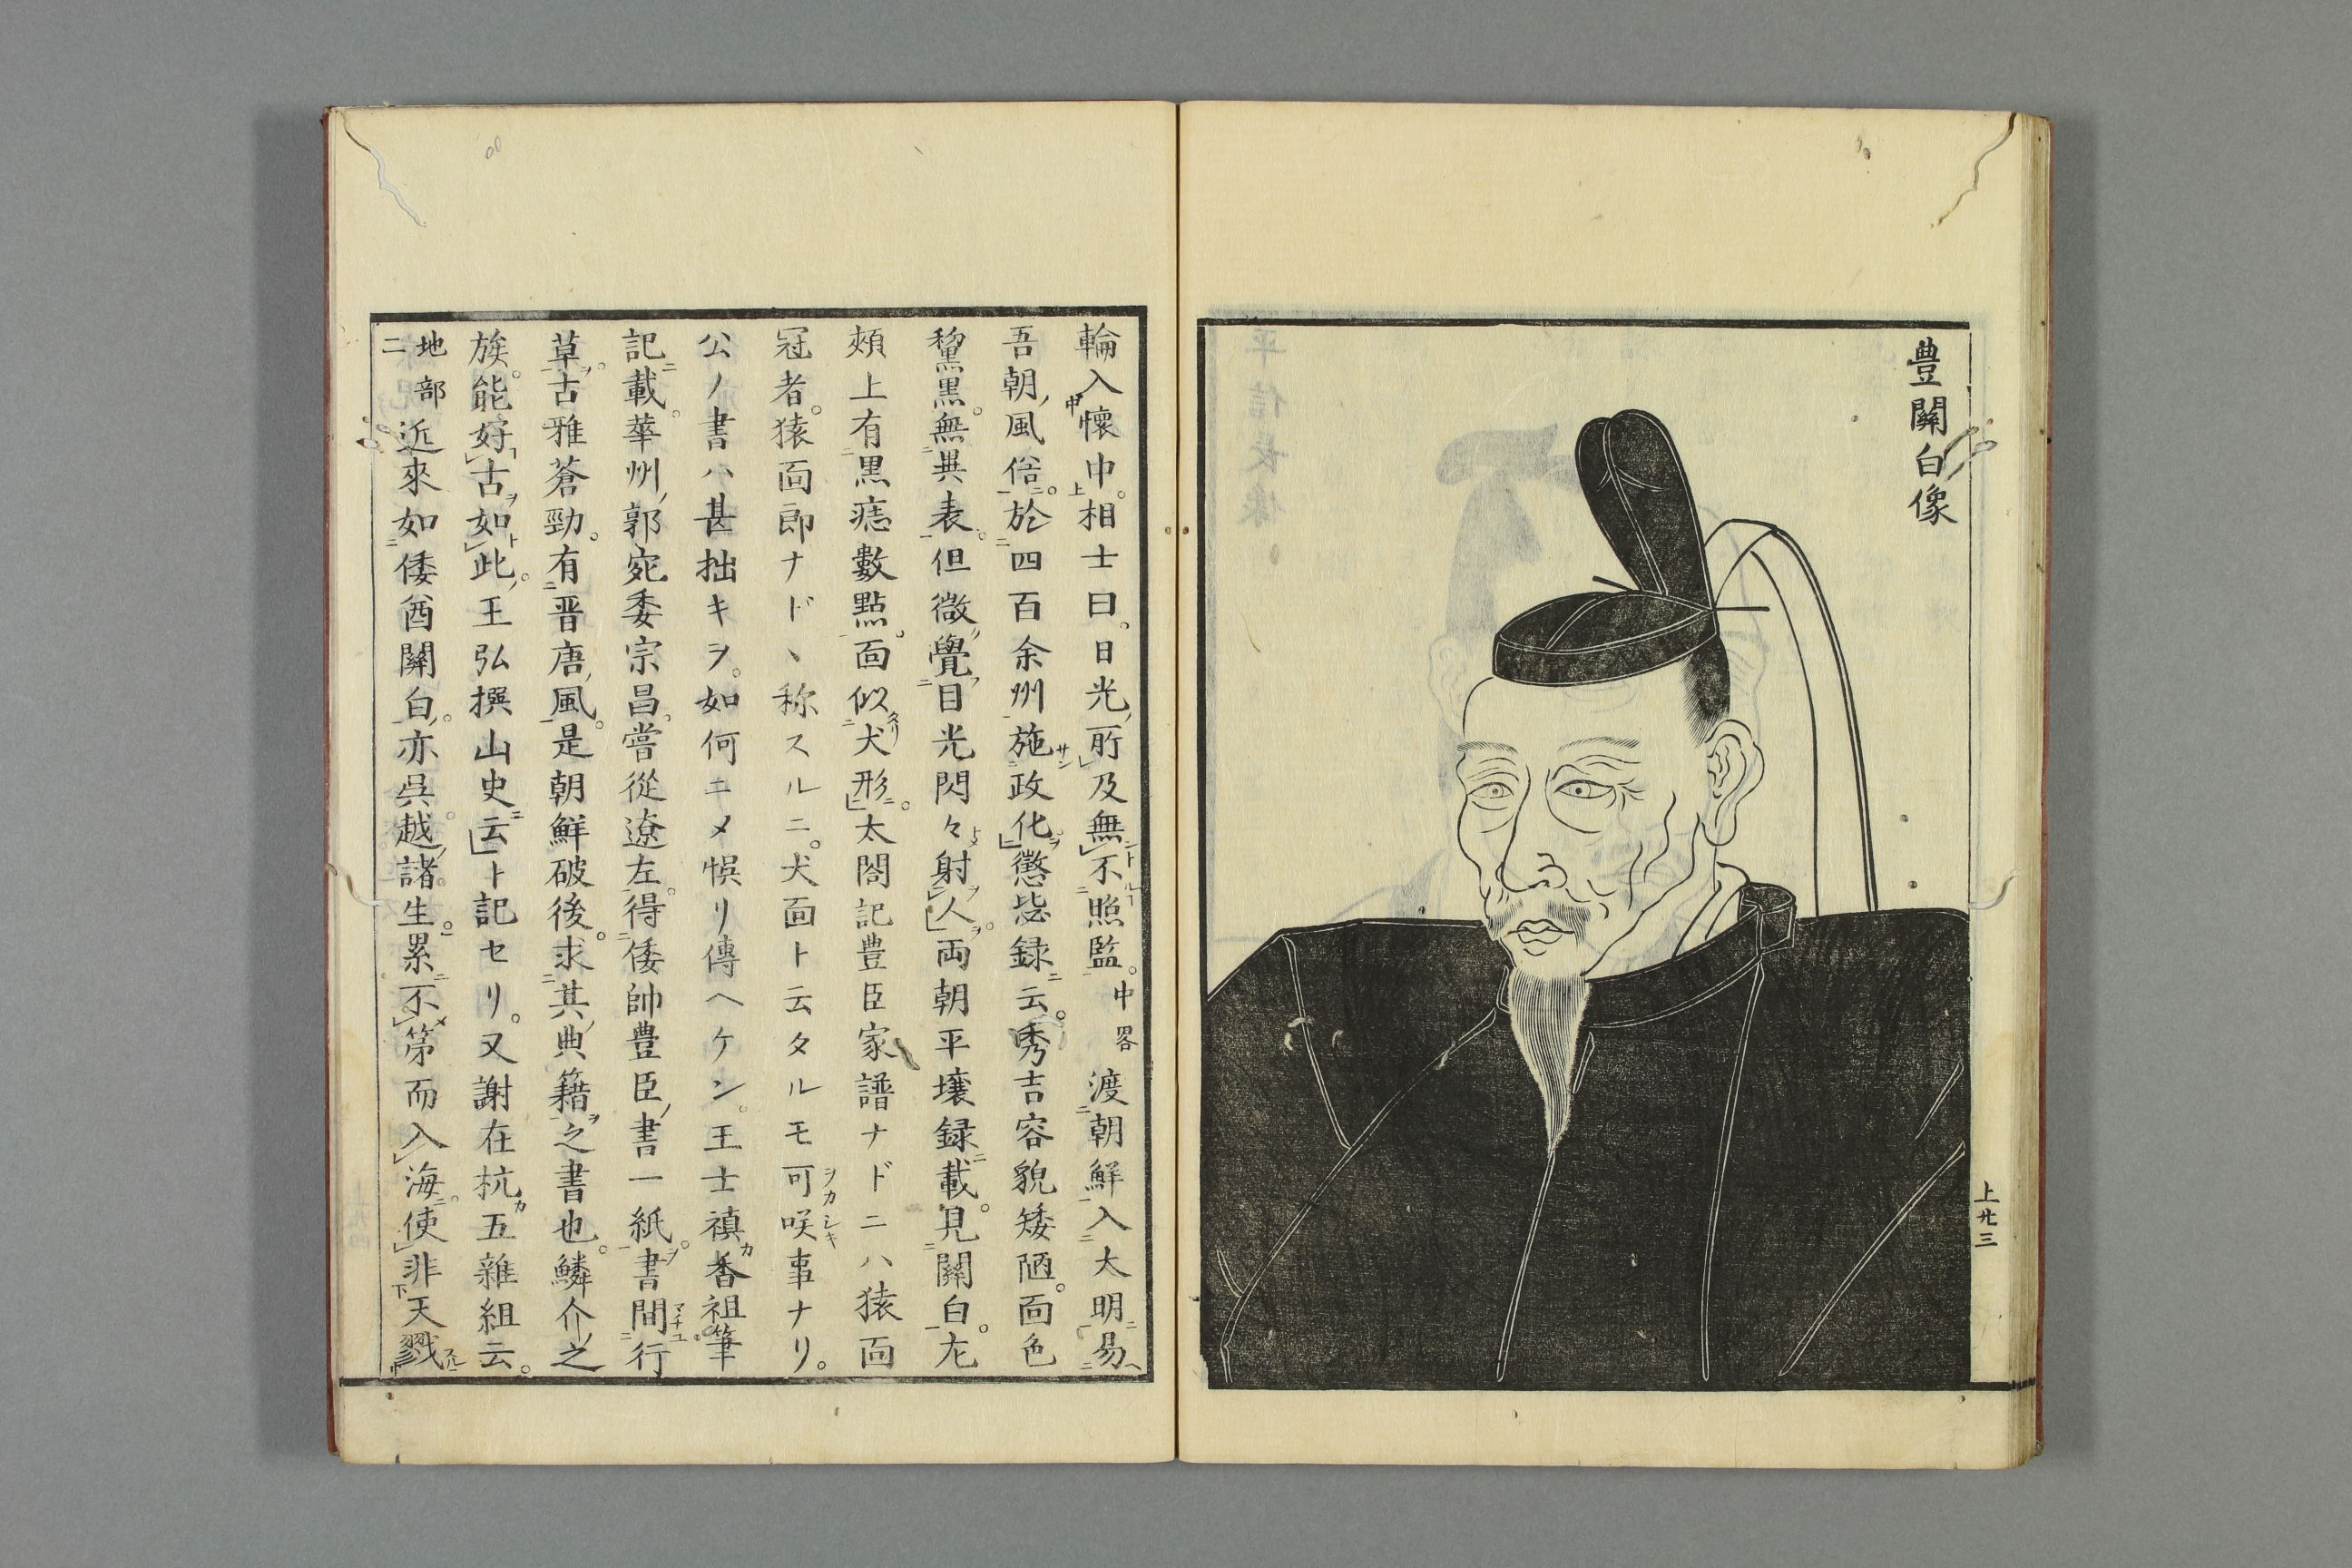 豊關白像
上廿三
輪入懷中。相士曰。日光所及無不照監。中畧渡朝鮮入大明易
吾朝風俗。於四百余州施政化。懲毖録云。秀吉容貌矮陋。面色
黧黒。無異表。但微覺目光閃々射人。両朝平壤録載。見關白。尢
頰上有黒痣數點。面似犬形。太閤記豊臣家譜ナドニハ猿面
冠者。猿面郎ナドヽ称スルニ。犬面ト云タルモ可咲事ナリ。
公ノ書ハ甚拙キヲ。如何ニメ悞リ傳ヘケン。王士禛香祖筆
記載。華州郭宛委宗昌。嘗從遼左。得倭帥豊臣書一紙。書間行
草。古雅蒼勁。有晋唐風。是朝鮮破後。求其典籍之書也。鱗介之
族。能好古如此。王弘撰山史云ト記セリ。又謝在杭五雜組云。
地部二近來如倭酋關白。亦呉越諸生。累不第而入海。使非天戮